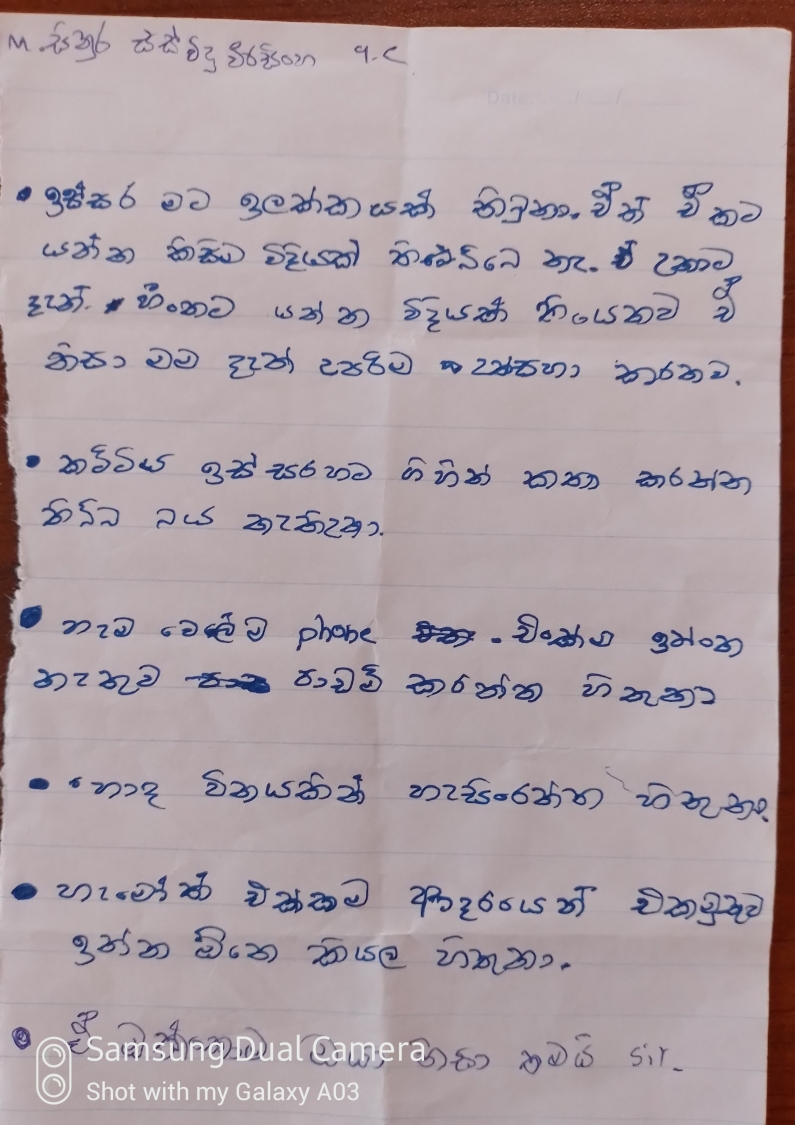 M. සිතුර සස්විදු වීරසිංහ 9.C
Date:
• ඉස්සර මට ඉලක්කයක් තිබුනා. ඒත් ඒකට
යන්න කිසිම විදියක් තිබෙබ්බෙ නැ. ඒ උනාට
දැන්. හීංනට යන්න විදියක් තියෙනව ඒ
නිසා මම දැන් උපරිම උත්සහා කරනව.
• කට්ටිය ඉස්සරහට ගිහින් කතා කරන්න
තිබ්බ බය නැතිඋනා.
• හැම වෙලේම phone . එංක්ම ඉන්න
නැතුව පාඩම් කරන්න හිතුනා
• හොද විනයකින් හැසිරෙන්න හිතුනා.
• හැමෝත් එක්කම ආදරයෙන් එකමුතුව
ඉන්න ඕනෙ කියල හිතුනා.
• ඒ ඔක්කොම ඔයා නිසා තමයි sir.
Samsung Dual Camera
Shot with my Galaxy A03